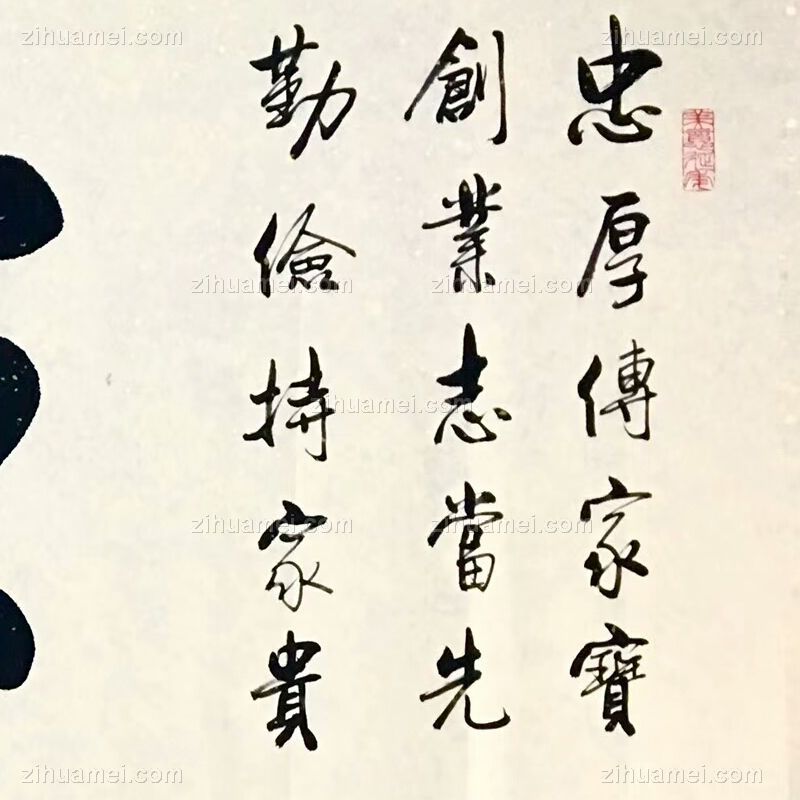 忠厚傳家寶
創業志當先
勤儉持家貴
zihuamei.com
zihuamei.com
zihuamei.com
zihuamei.com
zihuamei.com
zihuamei.com
zihuamei.com
zihuamei.com
zihuamei.com